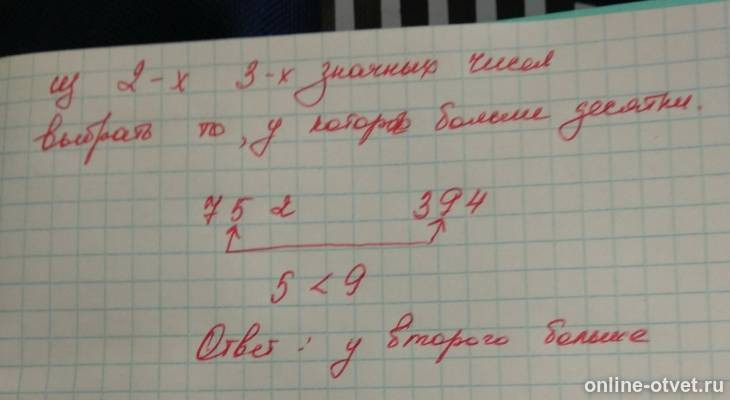 из 2-х 3-х значных чисел
выбрать то, у которого больше десятки.
752 394
5 < 9
Ответ: у второго больше
online-otvet.ru